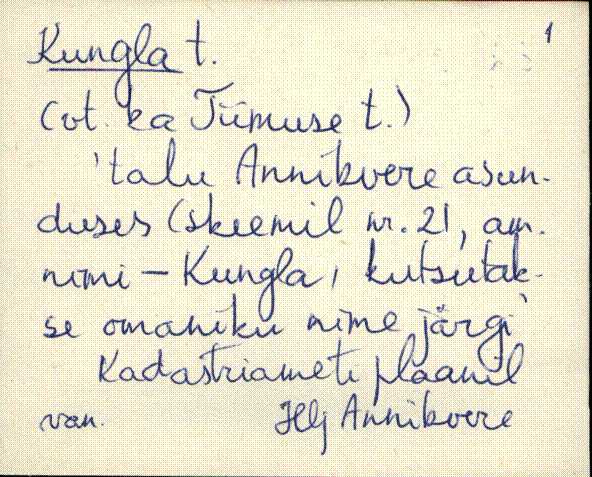 1
Kungla t.
(ot. ka Tiimuse t.)
'talu Annikvere asun-
duses (skeemil nr. 21, am.
nimi - Kungla, kutsutak-
se omaniku nime järgi'
Kadastriameti plaanil
van. Hlj Annikvere